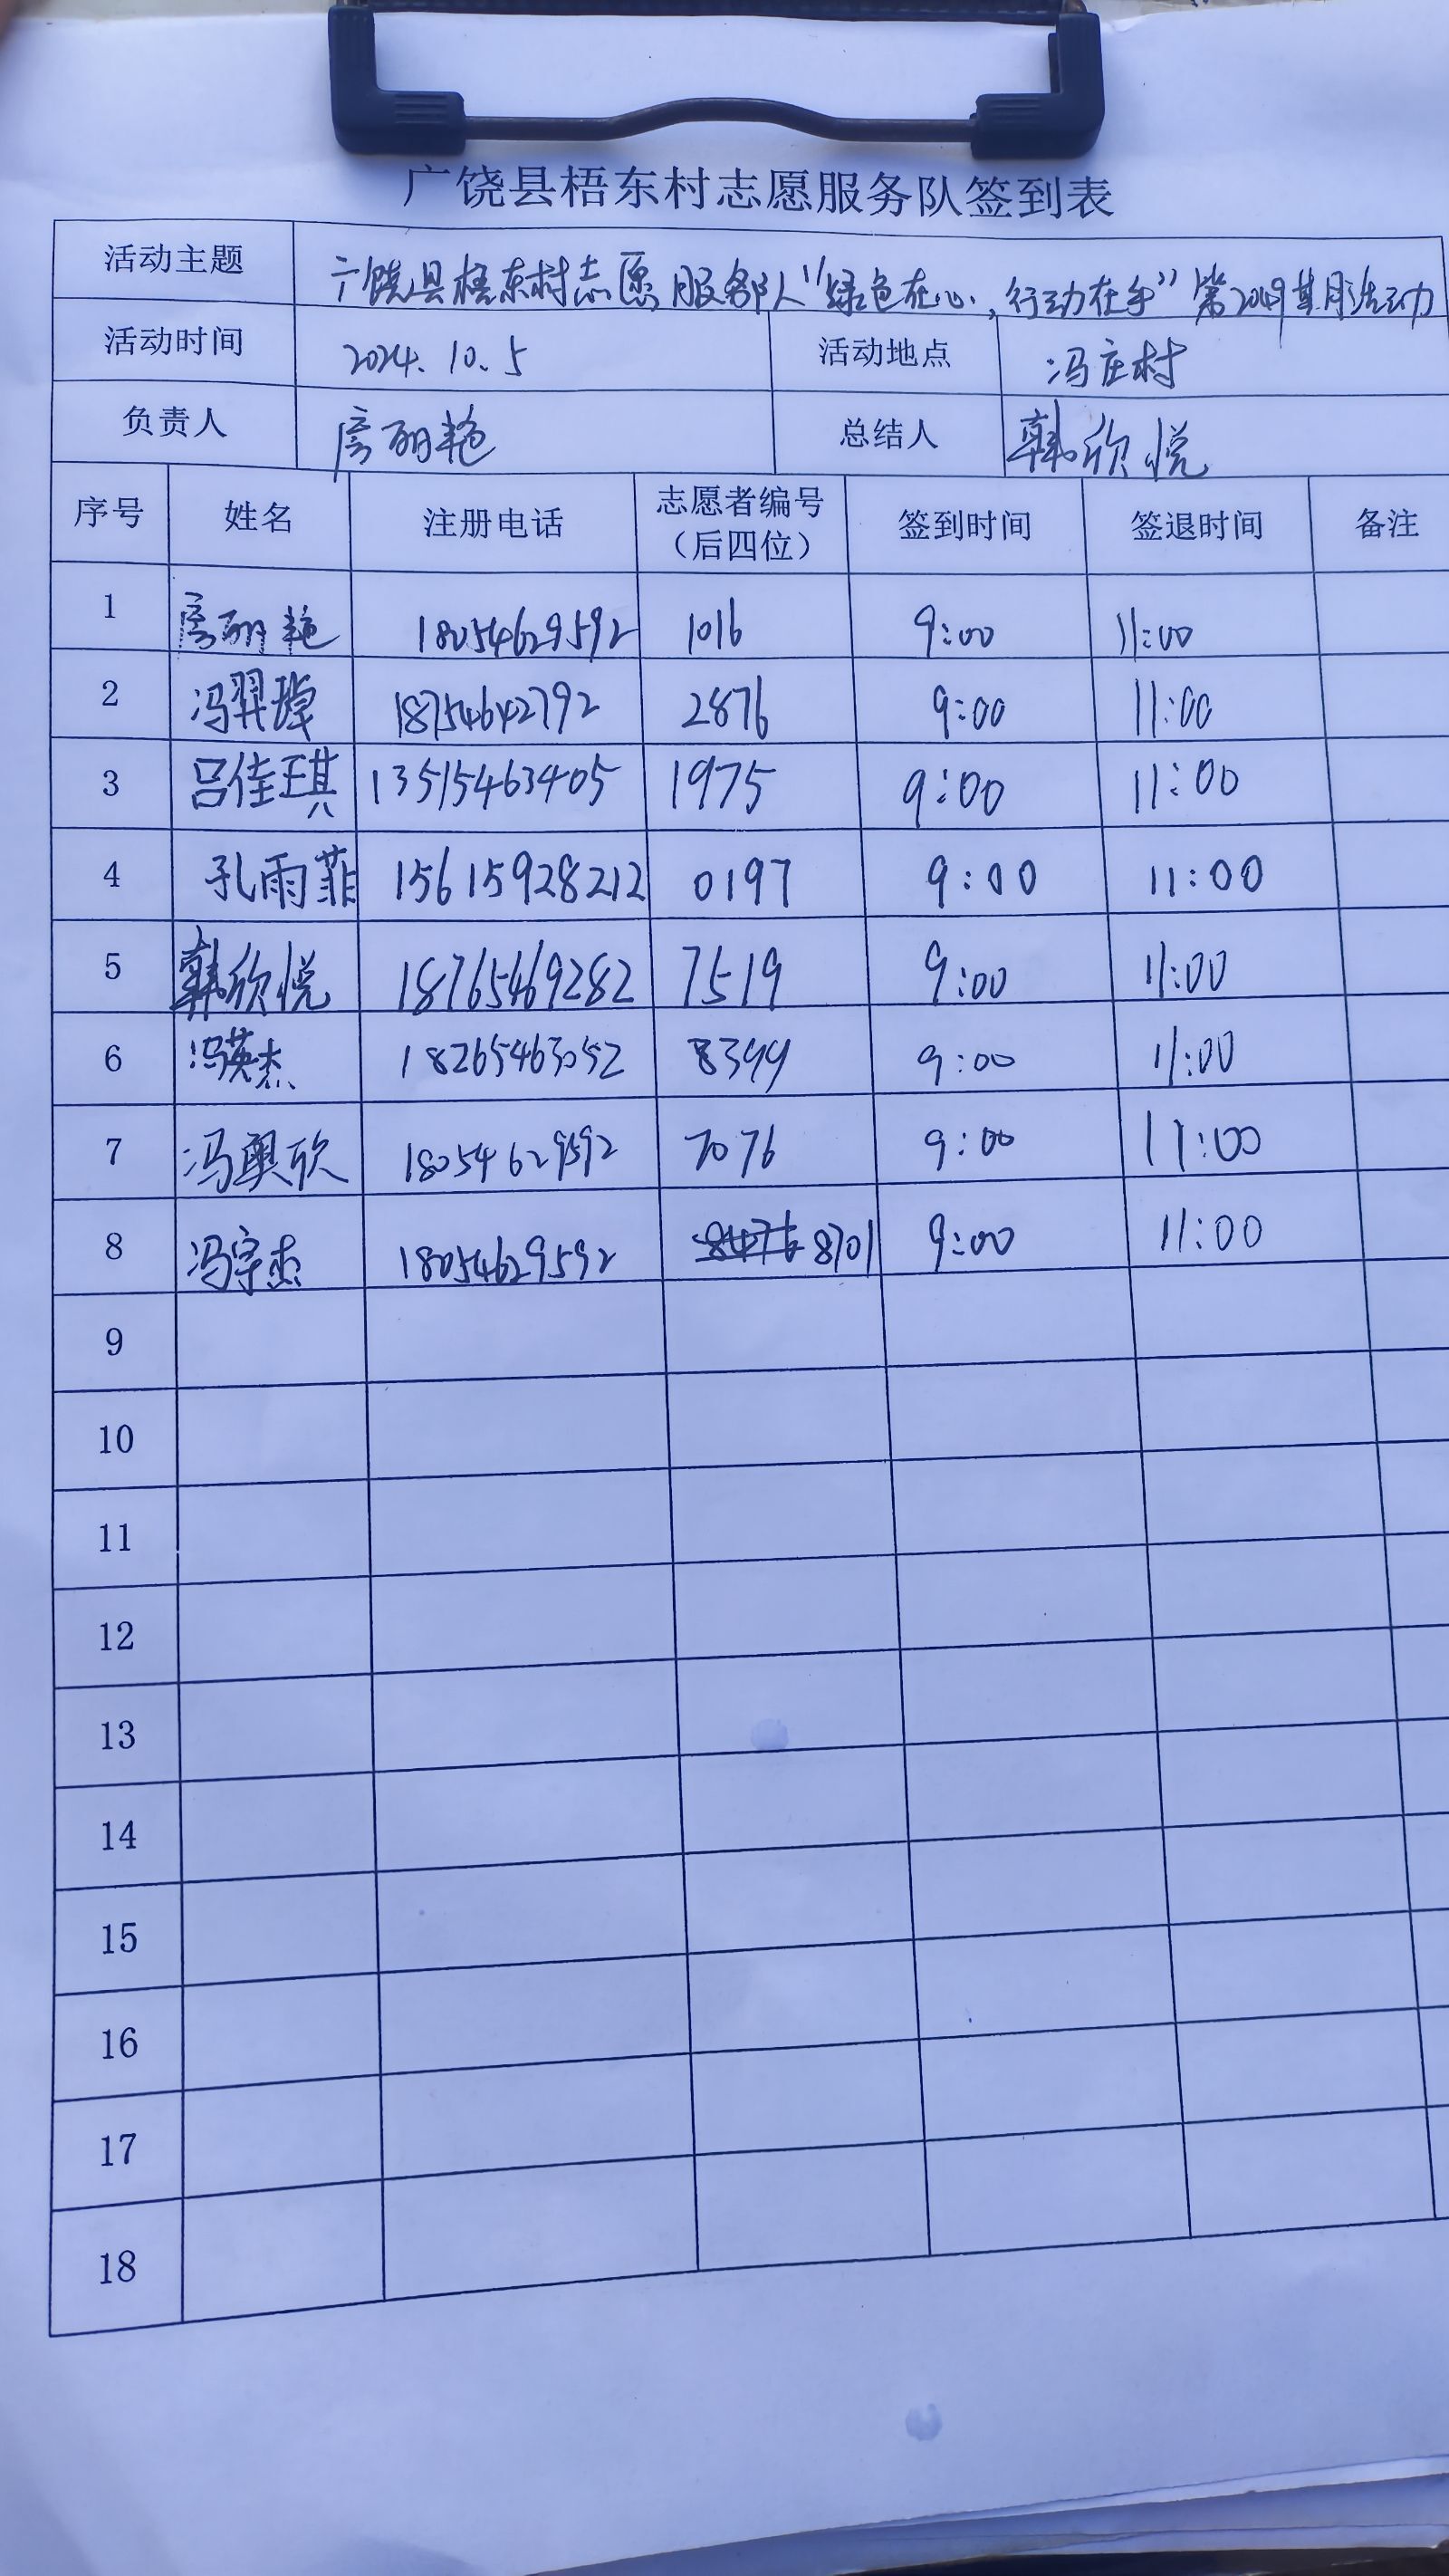 广饶县梧东村志愿服务队签到表
活动主题 广饶县梧东村志愿服务队“绿色在心,行动在手”第2049期月活动
活动时间 2024.10.5 活动地点 冯庄村
负责人 房丽艳 总结人 韩欣悦
序号 姓名 注册电话 志愿者编号(后四位) 签到时间 签退时间 备注
1 房丽艳 18054629592 1016 9:00 11:00
2 18754642792 2876 9:00 11:00
3 吕佳琪 13515463405 1975 9:00 11:00
4 孔雨菲 15615928212 0197 9:00 11:00
5 韩欣悦 18765469282 7519 9:00 11:00
6 冯英杰 18265463052 8399 9:00 11:00
7 冯奥欣 18054629592 7076 9:00 11:00
8 冯宇杰 18054629592 8701 9:00 11:00
9
10
11
12
13
14
15
16
17
18